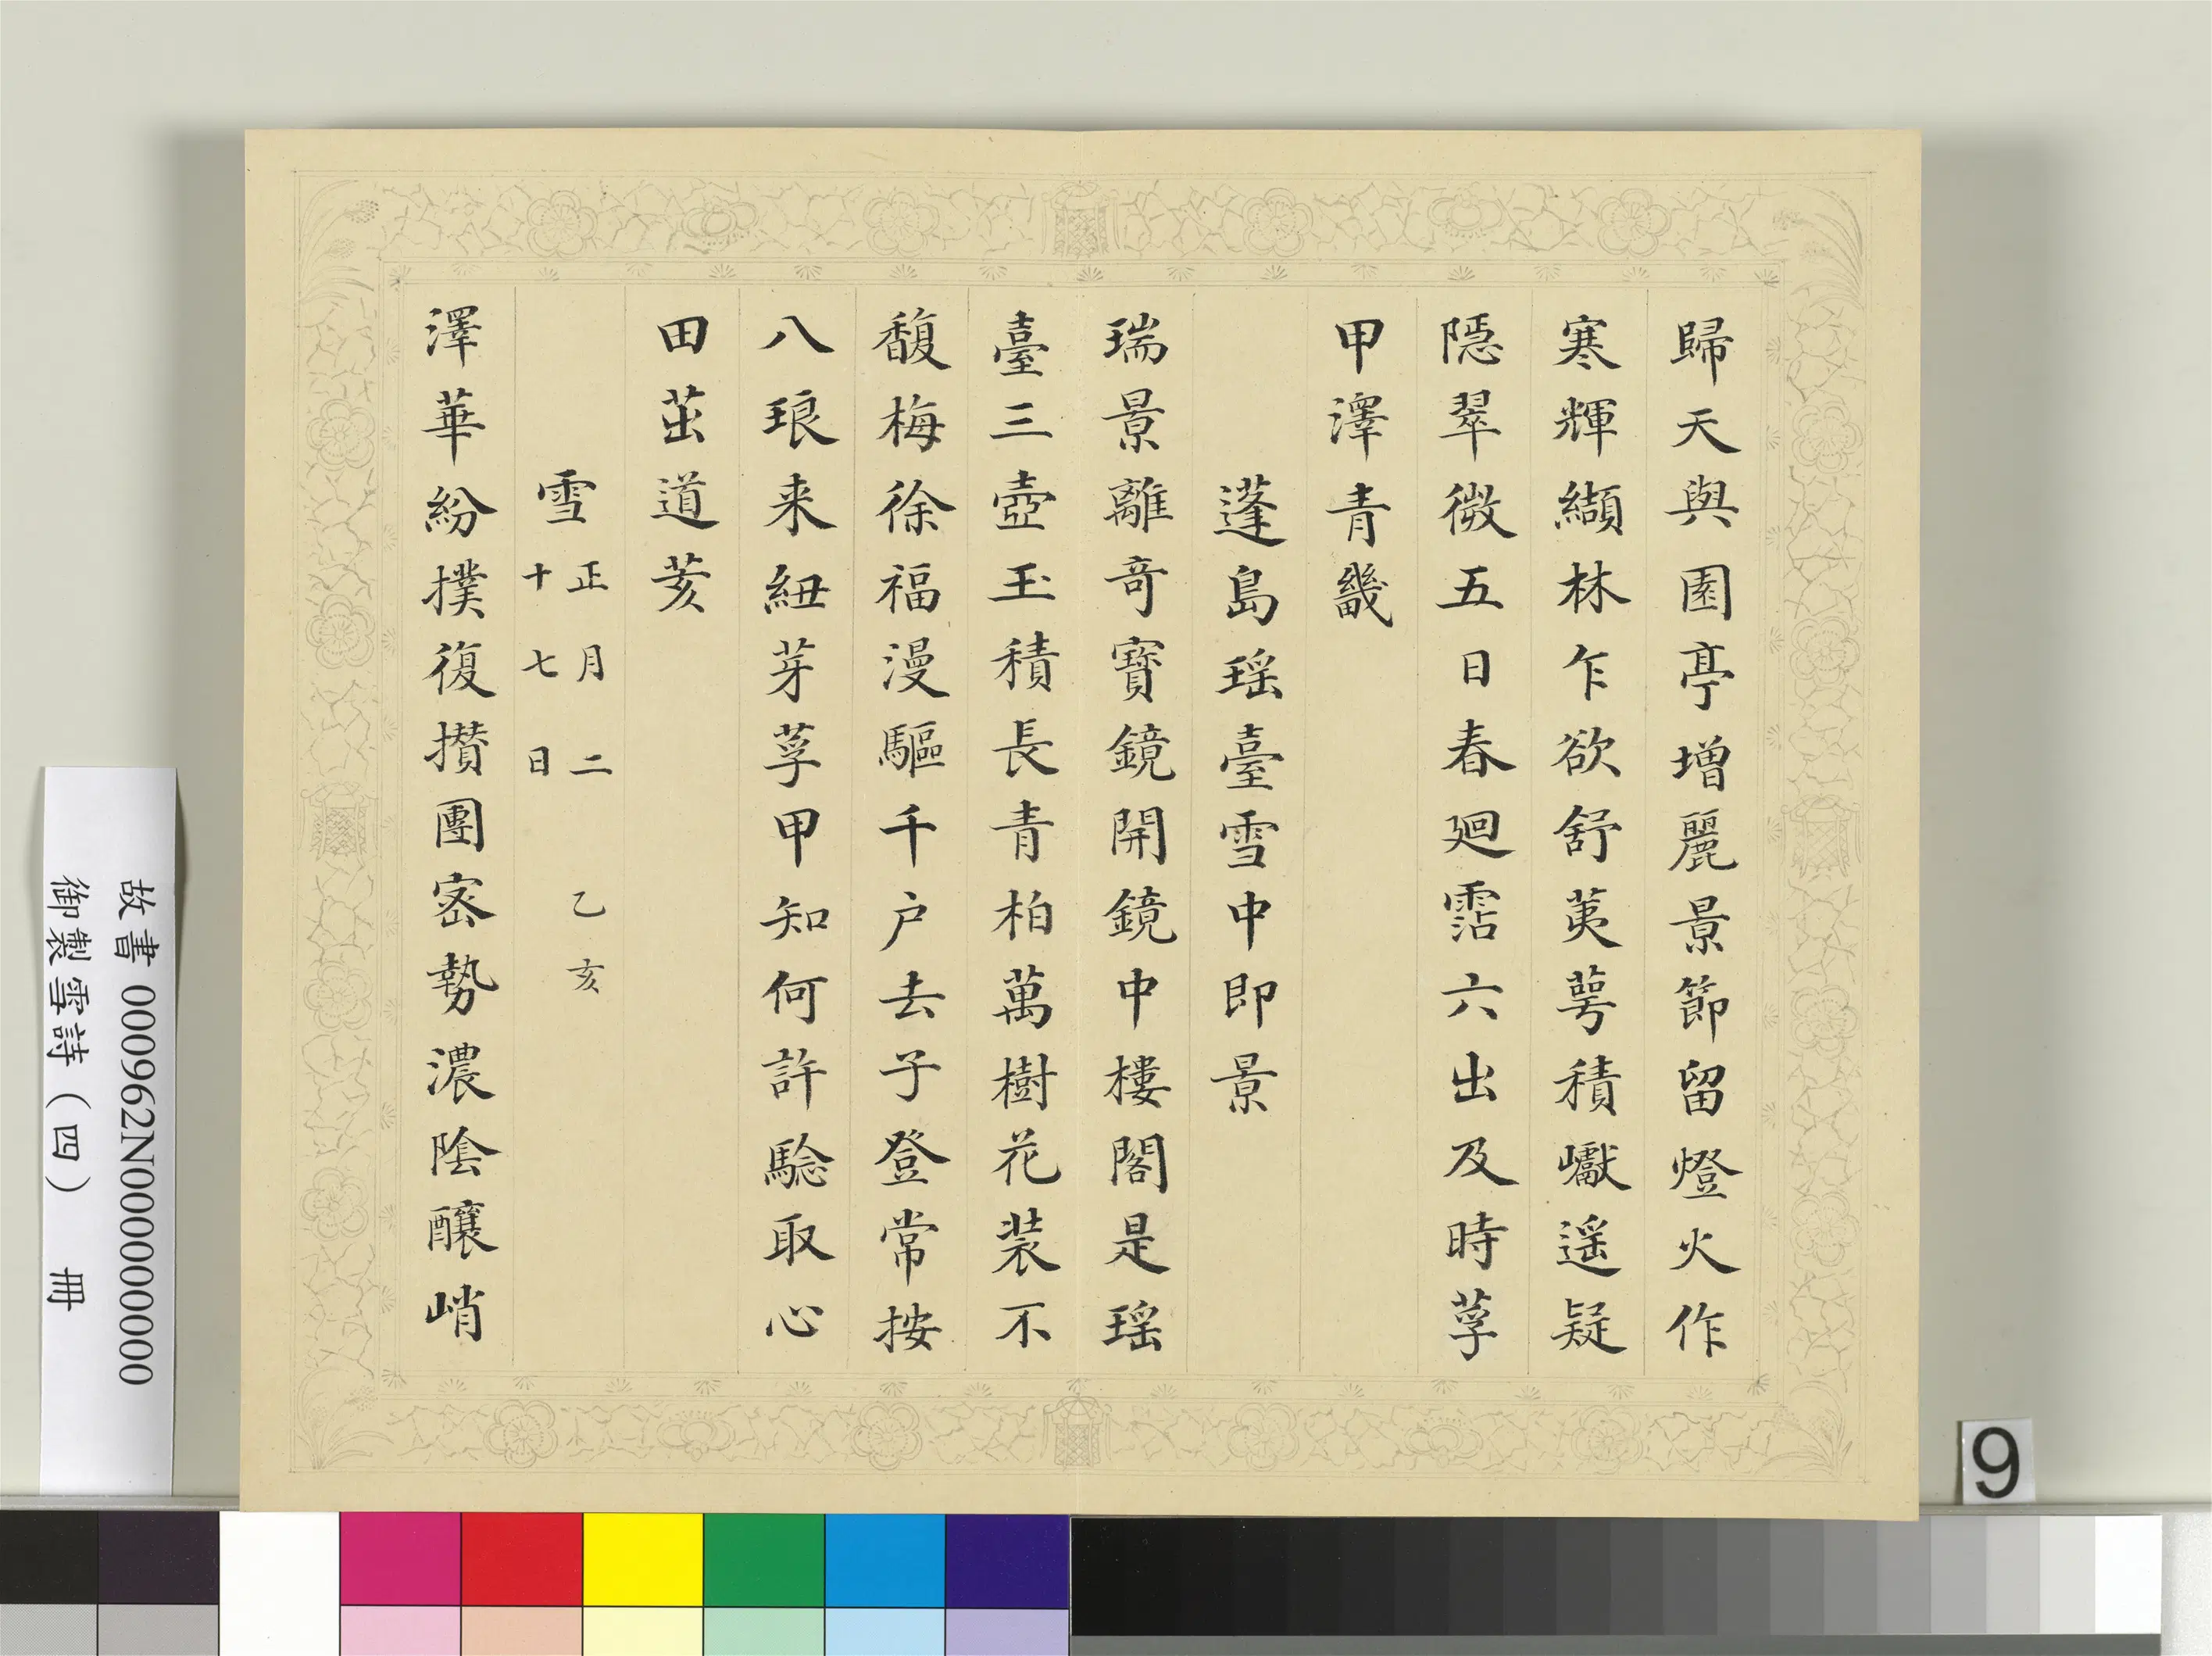 歸天與園亭增麗景節留燈火作
寒輝纈林乍欲舒荑萼積巘遥疑
隱翠微五日春廻霑六出及時莩
甲澤青畿
蓬島瑶臺雪中即景
瑞景離奇寶鏡開鏡中樓閣是瑶
臺三壺玉積長青柏萬樹花装不
馥梅徐福漫驅千户去子登常按
八琅来紐芽莩甲知何許驗取心
田茁道荄
雪 正月二十七日 乙亥
澤華紛撲復攢團密勢濃陰釀峭
故書 000962N000000000
御製雪詩（四） 冊
9